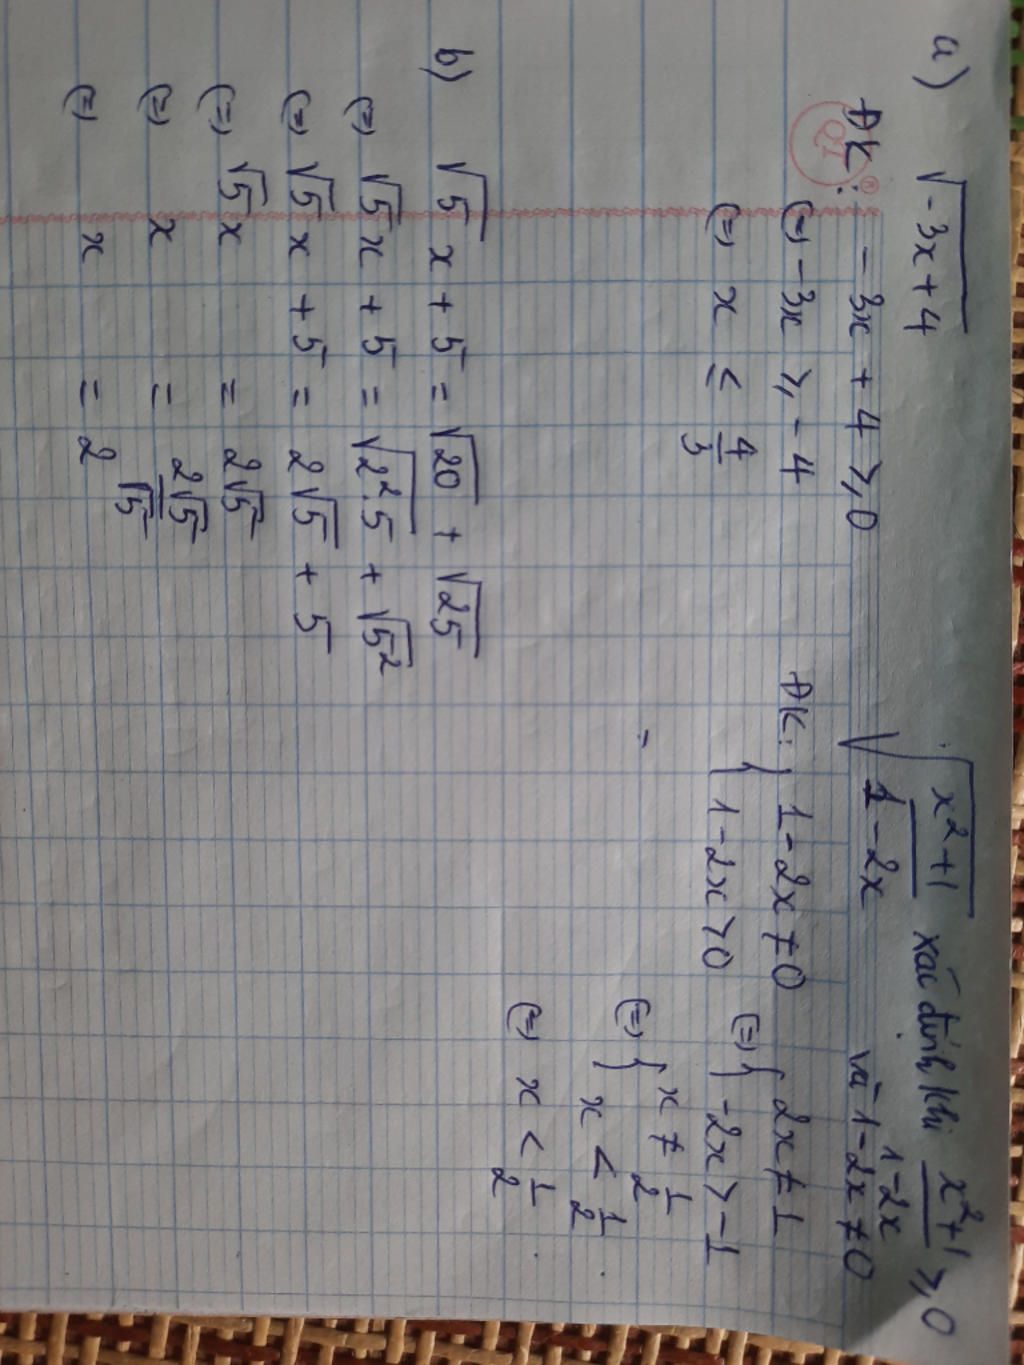 a) √-3x+4
ĐK: -3x+4 ⩾ 0
(=) -3x ⩾ -4
(=) x ≤ 4/3
√(x²+1)/(1-2x) xác định khi (x²+1)/(1-2x) ⩾ 0
và 1-2x ≠ 0
ĐK: { 1-2x ≠ 0
1-2x > 0
(=) { 2x ≠ 1
-2x > -1
(=) { x ≠ 1/2
x < 1/2
(=) x < 1/2.
b) √5 x + 5 = √20 + √25
(=) √5 x + 5 = √2².5 + √5²
(=) √5 x + 5 = 2√5 + 5
(=) √5 x = 2√5
(=) x = 2√5/√5
(=) x = 2